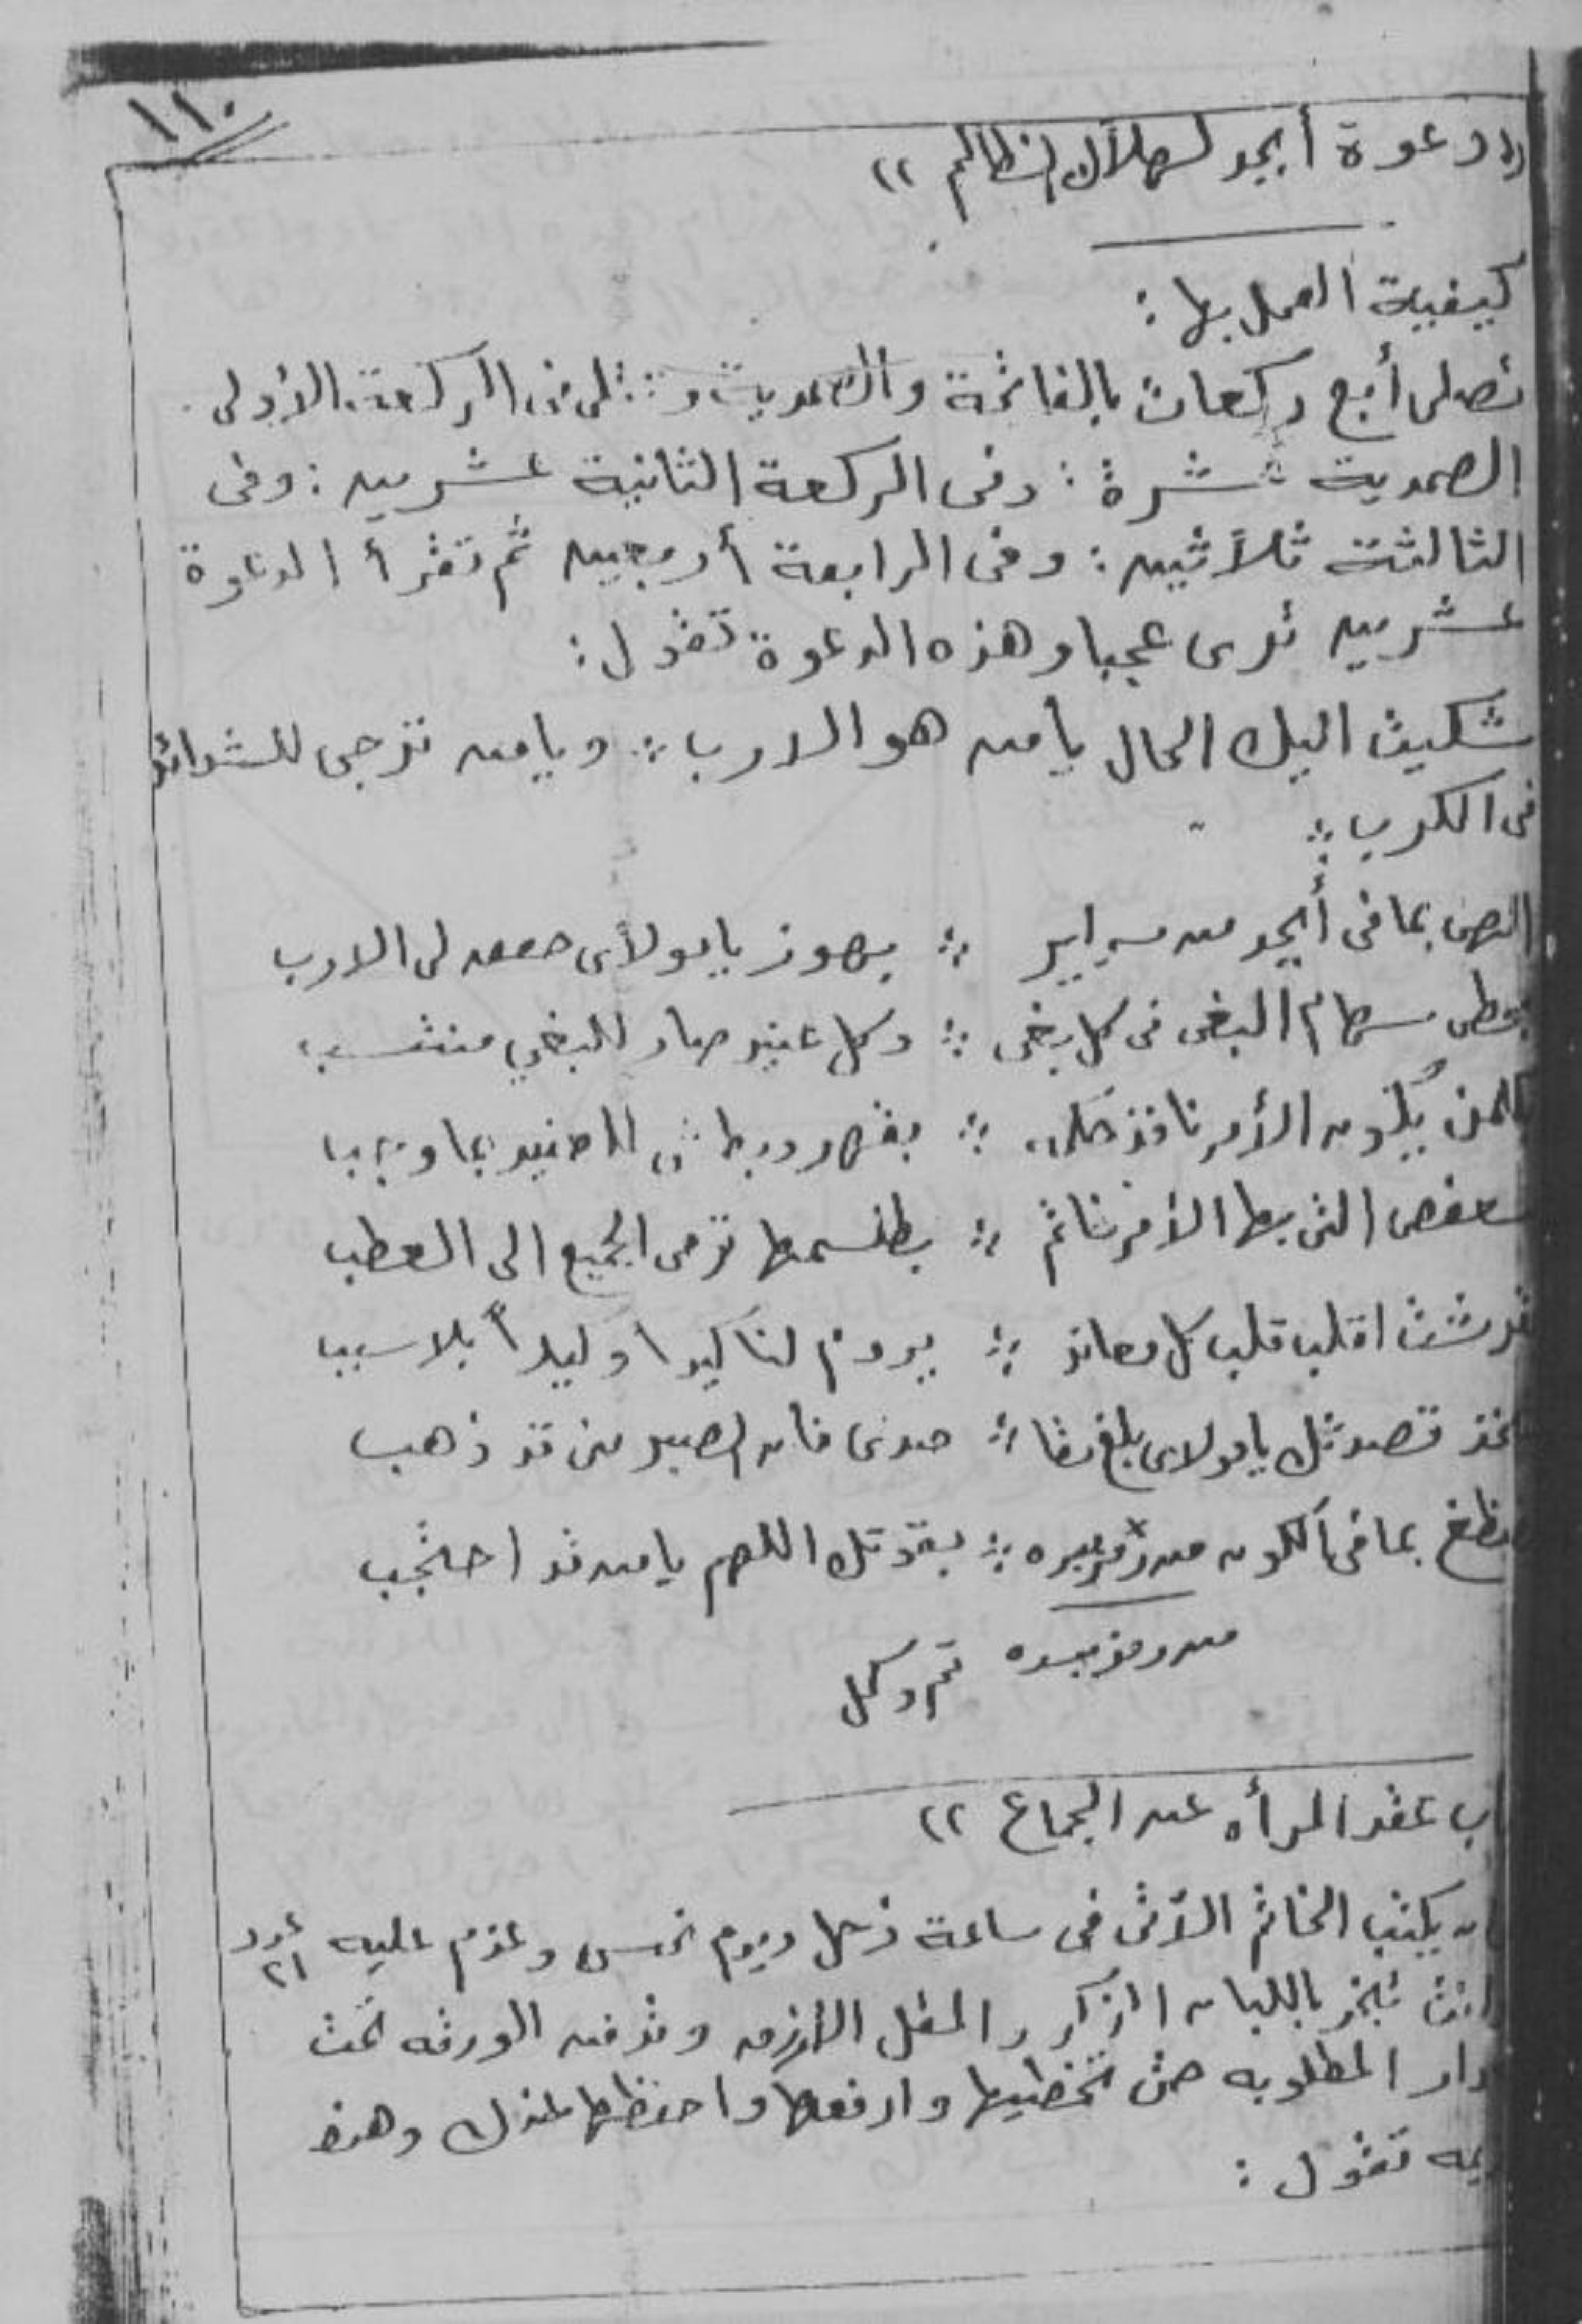 ١١٠
دعوة أبجد لهلاك الظالم ((
كيفية العمل بها :
تصلى أبع ركعات بالفاتحة والصمدية وتتلى فى الركعة الأولى
الصمدية عشرة : وفى الركعة الثانية عشرين : وفى
الثالثة ثلاثين : وفى الرابعة أربعين ثم تقرأ الدعوة
عشرين ترى عجبا وهذه الدعوة تقول :
شكيت اليك الحال يامن هو الارب ؛ ويامن ترجى للشدائد
فى الكرب ؛
الهى بما فى أبجد من سراير ؛ بهوز يامولاى لى الارب
بحطى سهام البغى فى كل بغى ؛ وكل عنيد صار للبغي منتسب
كلمن يكون الأمر نافذ ؛ بقهر وبطش
سعفص التى بها الأمر ؛ بطلسمها ترمى الجميع الى العطب
قرشت اقلب قلب كل معاند ؛ يروم لنا كيدا وكيداً بلا سببا
ثخذ قصدتك يامولاى ؛ فان الصبر منى قد ذهب
ضظغ بما فى الكون من ؛ بقوتك اللهم يامن قد احتجب
تم وكمل
باب عقد المرأه عن الجماع ((
يكتب الخاتم الآتى فى ساعة زحل ويوم نحس وعزم عليه عدد ٢١
وانت تبخر باللبان الذكر والمقل الأزرق وتدفن الورقه تحت
دار المطلوبه حتى تخطيها وارفعها واحفظها وهذه
تقول :